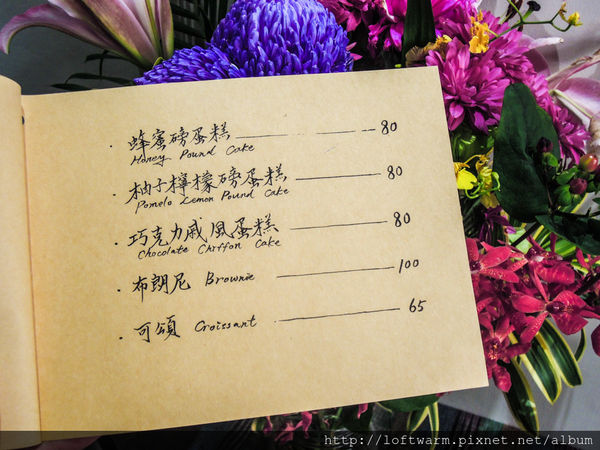 · 蜂蜜磅蛋糕 ———— 80
Honey Pound Cake
· 柚子檸檬磅蛋糕 ———— 80
Pomelo Lemon Pound Cake
· 巧克力戚風蛋糕 ———— 80
Chocolate Chiffon Cake
· 布朗尼 Brownie ———— 100
· 可頌 Croissant ———— 65
http://loftwarm.pixnet.net/album